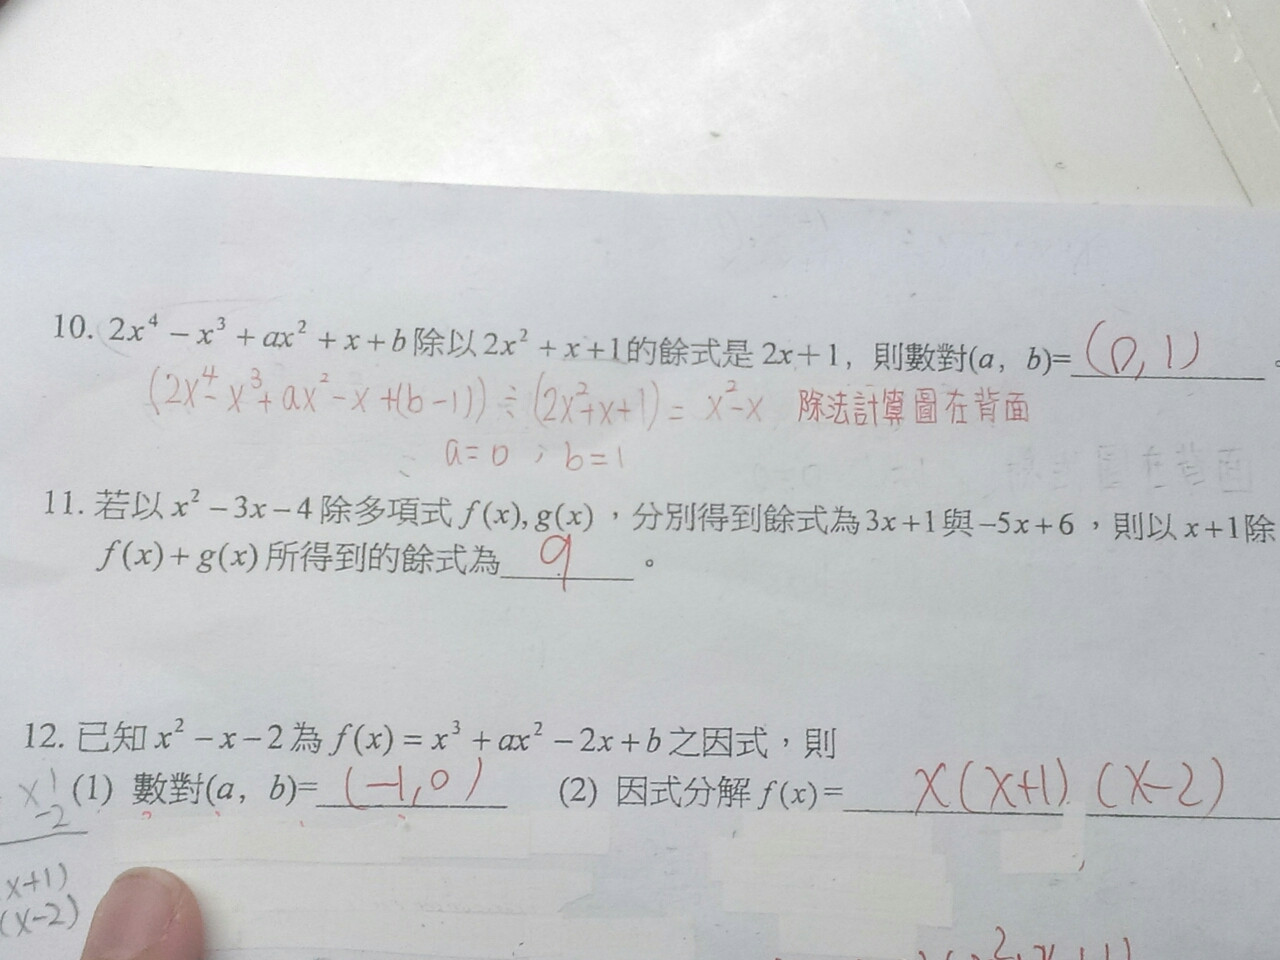 10. 2x⁴ − x³ + ax² + x + b 除以 2x² + x + 1 的餘式是 2x + 1, 則數對(a, b)= (0, 1) 。
(2x⁴ - x³ + ax² - x + (b - 1)) ÷ (2x² + x + 1) = x² - x 除法計算圖在背面
a = 0 ; b = 1
11. 若以 x² − 3x − 4 除多項式 f(x), g(x),分別得到餘式為 3x + 1 與 −5x + 6,則以 x + 1 除
f(x) + g(x) 所得到的餘式為 9 。
12. 已知 x² − x − 2 為 f(x) = x³ + ax² − 2x + b 之因式,則
(1) 數對(a, b)= (-1, 0) (2) 因式分解 f(x) = x(x+1) (x-2)
x 1
-2
x+1)
(x-2)